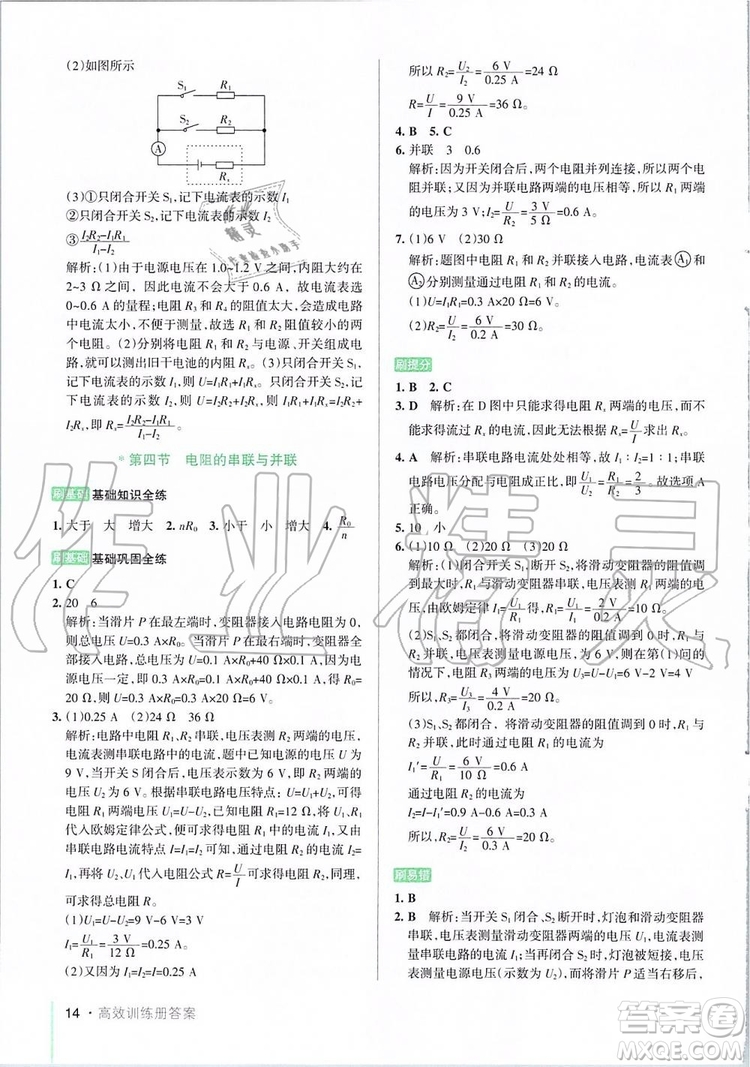 (2)如图所示
S₁ R₁
S₂ R₂
A
Rₓ
(3)①只闭合开关 S₁,记下电流表的示数 I₁
②只闭合开关 S₂,记下电流表的示数 I₂
③(I₂R₂-I₁R₁)/(I₁-I₂)
解析:(1)由于电源电压在 1.0~1.2 V 之间,内阻大约在
2~3 Ω 之间,因此电流不会大于 0.6 A,故电流表选
0~0.6 A 的量程;电阻 R₃ 和 R₄ 的阻值太大,会造成电路
中电流太小,不便于测量,故选 R₁ 和 R₂ 进行实验。
(2)如图所示,将电阻 R₁ 和 R₂ 与电源、开关组成电
路,就可以测出旧干电池的内阻。(3)只闭合开关 S₁,
记下电流表的示数 I₁,则 U=I₁R₁+I₁Rₓ。只闭合开关 S₂,
记下电流表的示数 I₂,则 U=I₂R₂+I₂Rₓ=I₁R₁+I₁Rₓ=I₂R₂+
I₂Rₓ,即 Rₓ=(I₂R₂-I₁R₁)/(I₁-I₂)。
*第四节 电阻的串联与并联
刷基础 基础知识全练
1. 大于 大 增大 2. nR₀ 3. 小于 小 增大 4. R₀/n
刷基础 基础巩固全练
1. C
2. 20 6
解析:当滑片 P 在最左端时,变阻器接入电路电阻为 0,
则总电压 U=0.3 A×R₀。当滑片 P 在最右端时,变阻器
全部接入,总电压 U=0.1 A×R₀+0.1 A×40 Ω。因为电
源电压一定,即 0.3 A×R₀=0.1 A×R₀+40 Ω×0.1 A,得
R₀=20 Ω。电源电压 U=0.3 A×R₀=0.3 A×20 Ω=6 V。
3. (1)0.25 A (2)24 Ω 36 Ω
解析:电路中电阻 R₁、R₂ 串联,电压表测 R₂ 两端的电压,
电流表测串联电路中的电流,I₁=I₂=I。已知电源的电压 U 为
9 V,当开关闭合后,电压表示数为 6 V,即 R₂ 两端的电
压 U₂ 为 6 V。根据串联电路电压特点:U=U₁+U₂,可求得
电阻 R₁ 两端电压 U₁=U-U₂,已知电阻 R₁=12 Ω,将 U₁、R₁
代入欧姆定律公式,即可求得通过电阻 R₁ 的电流 I₁,又由
串联电路电流特点可知,通过电阻 R₂ 的电流 I₂=I₁=
I₁,再将 U₂、I₂ 代入 R=U/I 可求得电阻 R₂,同理,
可求得总电阻。
(1)U₁=U-U₂=9 V-6 V=3 V
I₁=U₁/R₁=3 V/12 Ω=0.25 A。
(2)又因为 I₁=I₂=I
14·高效训练册答案
所以 R₂=U₂/I₂=6 V/0.25 A=24 Ω
R=U/I=9 V/0.25 A=36 Ω。
4. B 5. C
6. 并联 3 0.6
解析:因为开关闭合后,两个电阻并列连接,所以它们组成
并联电路。因为并联电路两端的电压相等,所以 R₁ 两端
的电压为 3 V;I₂=U₂/R₂=3 V/5 Ω=0.6 A。
7. (1)6 V (2)30 Ω
解析:题图中电阻 R₁ 和 R₂ 并联接入电路,电流表 A₁ 和
A₂ 分别测量通过电阻 R₁ 和 R₂ 的电流。
(1)U=I₁R₁=0.3 A×20 Ω=6 V。
(2)R₂=U/I₂=6 V/0.2 A=30 Ω。
刷提分
1. B 2. C
3. D 解析:在 D 图中只能求得电阻 Rₓ 两端的电压,而无
法求得通过电阻 Rₓ 的电流,因此无法根据 R=U/I 求得 Rₓ。
4. A 解析:串联电路电流处处相等,故 1∶1;串联
电路电压分配与电阻成正比,即 U₁/U₂=R₁/R₂=2/3。
5. 10 小
6. (1)10 Ω (2)20 Ω (3)20 Ω
解析:(1)闭合开关 S₁,将滑动变阻器的阻值调
到最大时,R₁ 与滑动变阻器串联,电压表测 R₁ 两端的电
压,由欧姆定律 I=U/R 得,R₁=U₁/I₁=2 V/0.2 A=10 Ω。
(2)S₁、S₂ 都闭合,将滑动变阻器的阻值调到最大时,
电压表测量电源电压,为 6 V。所以在第(1)问的
情况下,滑动变阻器两端的电压 U₃=U-U₁=6 V-2 V=4 V,
所以,R₃=U₃/I₁=4 V/0.2 A=20 Ω。
(3)S₁、S₂ 都闭合,将滑动变阻器的阻值调到最小时,R₁
与 R₂ 并联,此时通过电阻 R₁ 的电流为
I₁′=U/R₁=6 V/10 Ω=0.6 A
则通过电阻 R₂ 的电流为
I₂=I-I₁′=0.9 A-0.6 A=0.3 A
所以,R₂=U/I₂=6 V/0.3 A=20 Ω。
刷易错
1. B
2. B 解析:当开关 S₁ 闭合、S₂ 断开时,灯泡和滑动变阻器
串联,电压表测量滑动变阻器两端的电压,电流表测量电
路中的电流。当开关 S₁、S₂ 都闭合时,灯泡被短接,电压表测电源
电压(示数为 U₂)。因为将滑片 P 适当右移后,